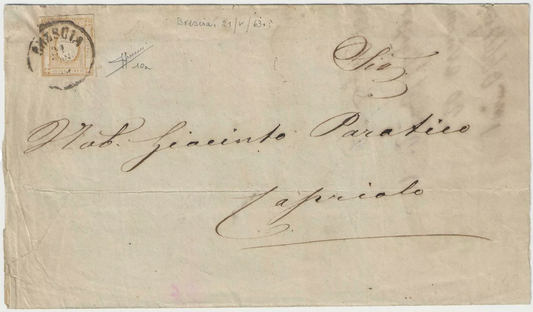 Brescia. 21/V/63.?
BRESCIA
10a
Sig
Nob. Giacinto Paratico
Capriolo